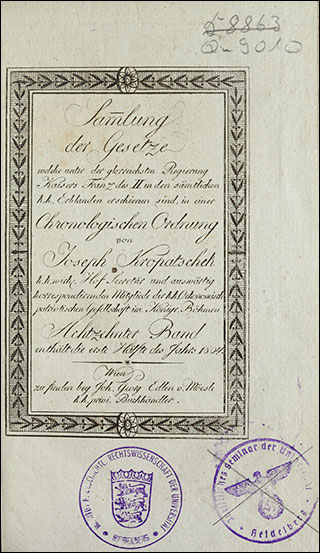 F 8863
Sam̄lung
der Gesetze
welche unter der glorreichsten Regierung
Kaisers Franz des II in den sämtlichen
k.k. Erblanden erschienen sind, in einer
Chronologischen Ordnung
von
Joseph Kropatschek
k.k. wirkl. Hof-Secretär und auswärtig
korrespondirenden Mitgliede der k.k. Oekonomisch
patriotischen Gesellschaft im Königr. Böhmen
Achtzehnter Band
enthält die erste Hälfte des Jahrs 1804.
Wien
zu finden bey Joh. Georg Edlen v. Mösle
k.k. priv. Buchhändler.
RECHTSWISSENSCHAFT DER UNIVERSITÄT
Seminar der
Heidelberg